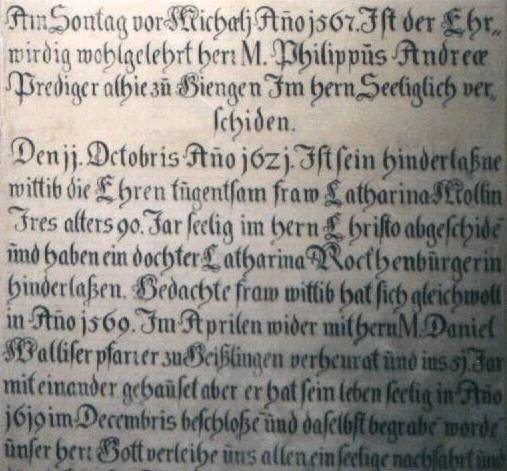 Am Sontag vor Michaelj Año j567. Ist der Ehr„
wirdig wohlgelehrt herr M. Philippűs Andreæ
Prediger alhie zű Giengen Im hern Seeliglich ver„
schiden.
Den jj. Octobris Año j62j. Ist sein hinderlaßne
wittib die Ehren tűgentsam fraw Catharina Mollin
Ires alters 90. Jar seelig im hern Christo abgeschidē
űnd haben ein dochter Catharina Rockhenbűrgerin
hinderlaßen. Gedachte fraw wittib hat sich gleichwoll
in Año j569. Im Aprilen wider mit hern M. Daniel
Walliser pfarrer zu Geißlingen verheurat űnd ins 5j. Jar
mit einander gehaűset aber er hat sein leben seelig in Año
j6j9 im Decembris beschloßē űnd daselbst begrabē wordē
űnser herr Gott verleihe űns allen ein seelige nachfahrt űnd